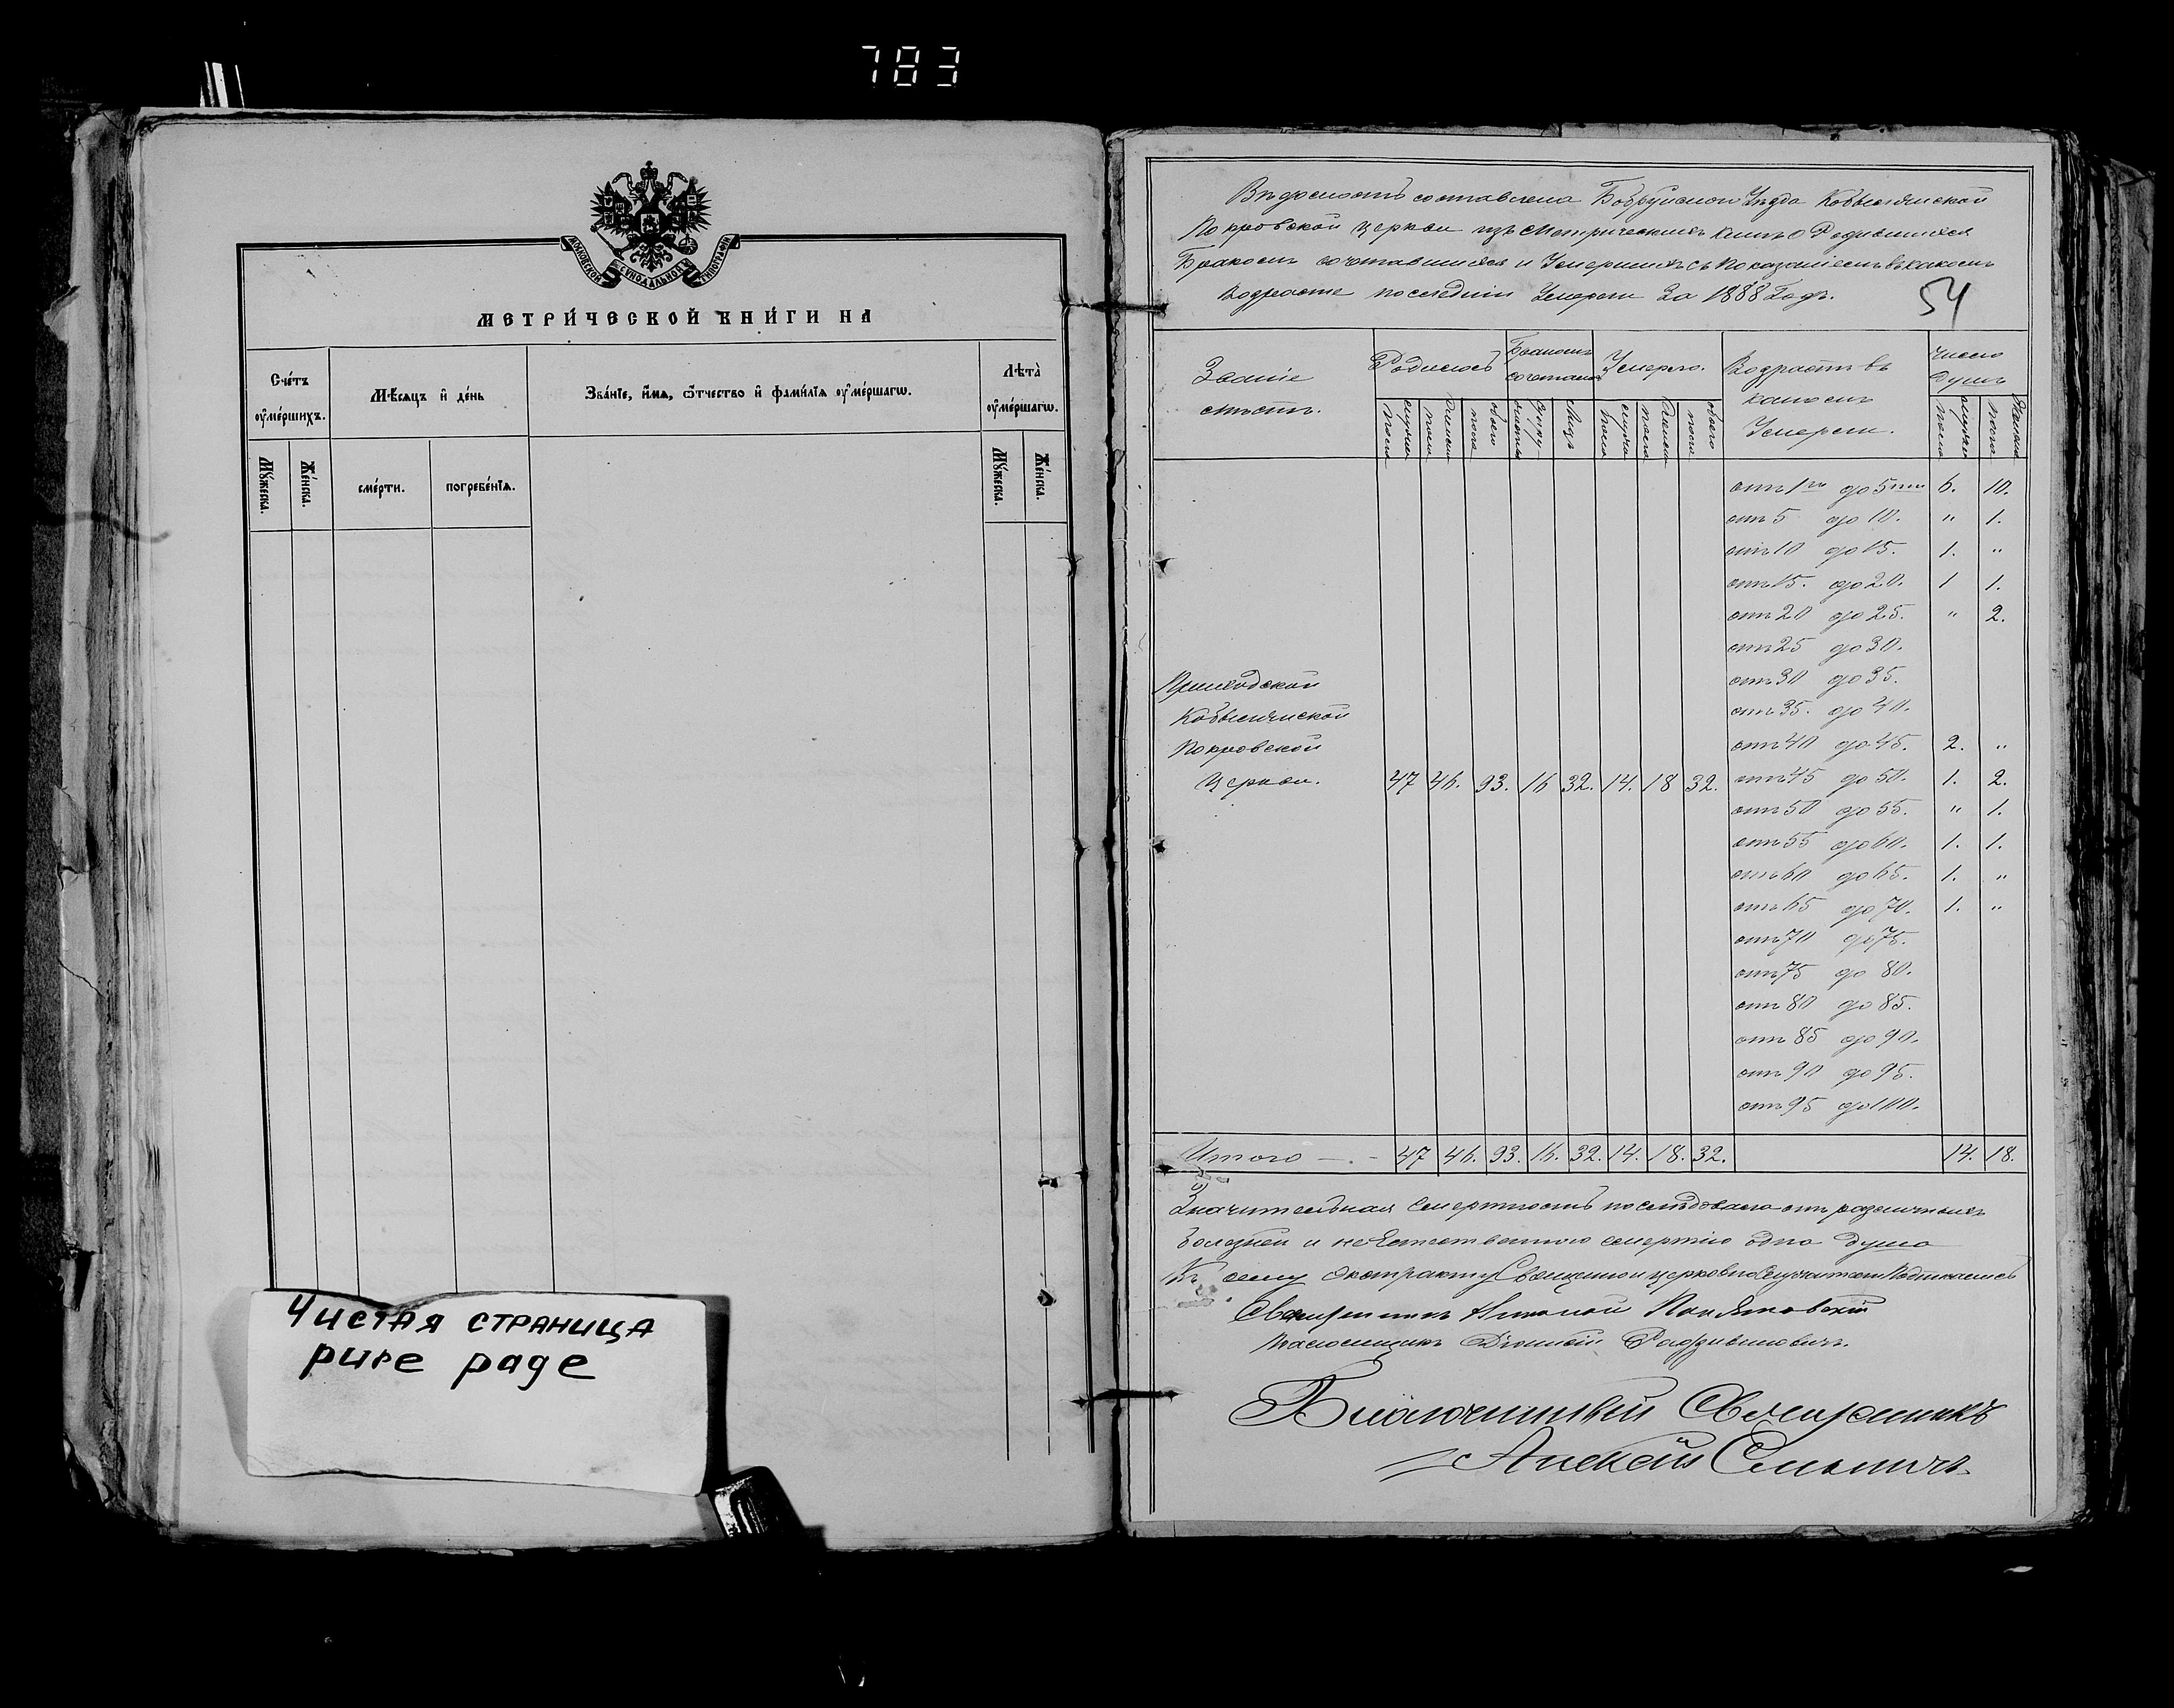 783
МОСКОВСКОЙ СѴНОДАЛЬНОЙ ТИПОГРАФІИ
МЕТРИ́ЧЕСКОЙ КНИ́ГИ НА
Сче́тъ оу҆ме́ршихъ.
Мѣ́сяцъ и҆ де́нь
Зва́нїе, и҆́мѧ, ѻ҆́тчество и҆ фами́лїѧ оу҆ме́ршагѡ.
Лѣта̀ оу҆ме́ршагѡ.
Мꙋ́жеска.
Же́нска.
сме́рти.
погребе́нїѧ.
Мꙋ́жеска.
Же́нска.
Чистая страница
pure page
Вѣдомость составлена Бобруйскаго Уѣзда
Покровской церкви изъ Метрическихъ книгъ о Родившихся
Бракомъ сочетавшихся и Умершихъ съ показаніемъ въ какомъ
Возрастѣ послѣдніи Умерли За 1888 Годъ.
54
Званіе
мѣстъ.
Родилось
Бракомъ
сочеталось
Умерло.
Возрастъ въ
какомъ
Умерли.
Число
душъ
мужеска пола
женска пола
обоего пола
Лицъ
мужеска пола
женска пола
обоего пола
мужеска пола
женска пола
отъ 1го до 5ти 6. 10.
отъ 5 до 10. " 1.
отъ 10 до 15. 1. "
отъ 15. до 20. 1 1.
отъ 20 до 25. " 2.
отъ 25 до 30.
отъ 30 до 35.
отъ 35. до 40.
отъ 40 до 45. 2. "
Приходской
Покровской
церкви. 47 46. 93. 16 32. 14. 18 32. отъ 45 до 50. 1. 2.
отъ 50 до 55. " 1.
отъ 55 до 60. 1. 1.
отъ 60 до 65. 1. "
отъ 65 до 70. 1. "
отъ 70 до 75.
отъ 75 до 80.
отъ 80 до 85.
отъ 85 до 90.
отъ 90 до 95.
отъ 95 до 100.
Итого 47 46. 93. 16. 32. 14. 18. 32. 14. 18.
Значительная смертность послѣдовала отъ различныхъ
болезней и неестественною смертію одна душа
Къ сему экстракту Священно и церковнослужители Подписались
Священникъ Николай
Псаломщикъ
Благочинный Священникъ
Алексѣй